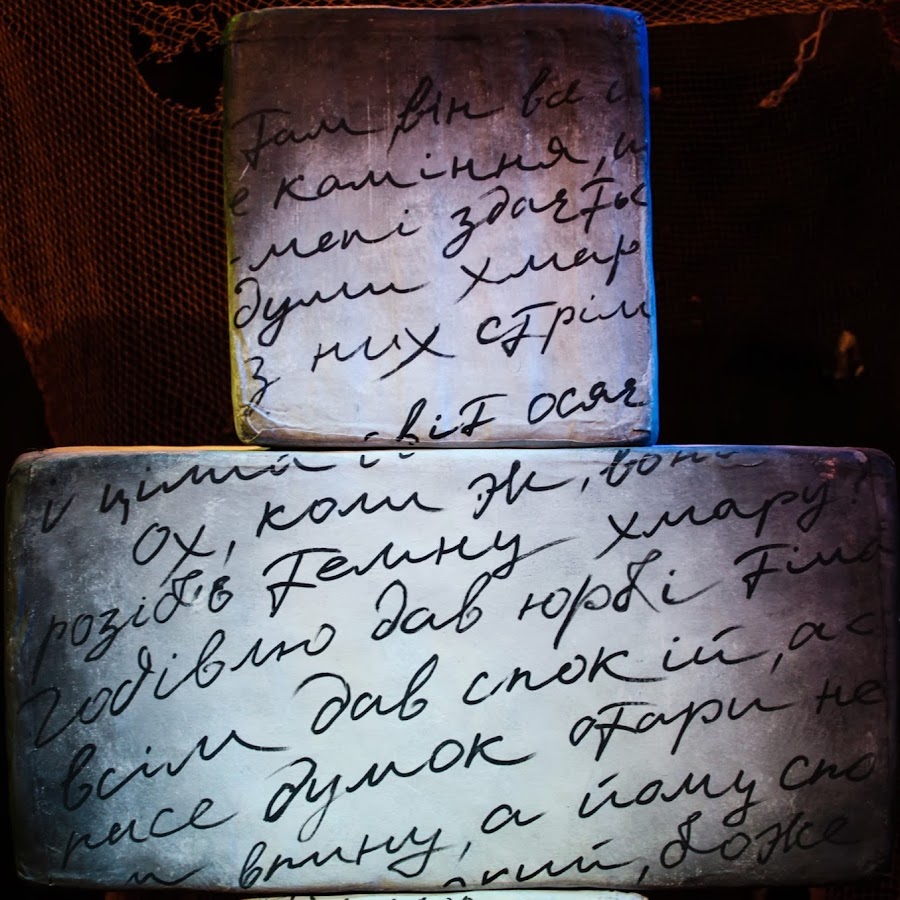 там він все с
е каміння, и
-мені здаєть
думи хмар
з них стрім
світ осяє
і цілий
ох, коли ж, вони
розібʼє темну хмару?
годівлю дав юрбі тіла
всім дав спокій, ас
писе думок отари не
впину, а йому спо
боже